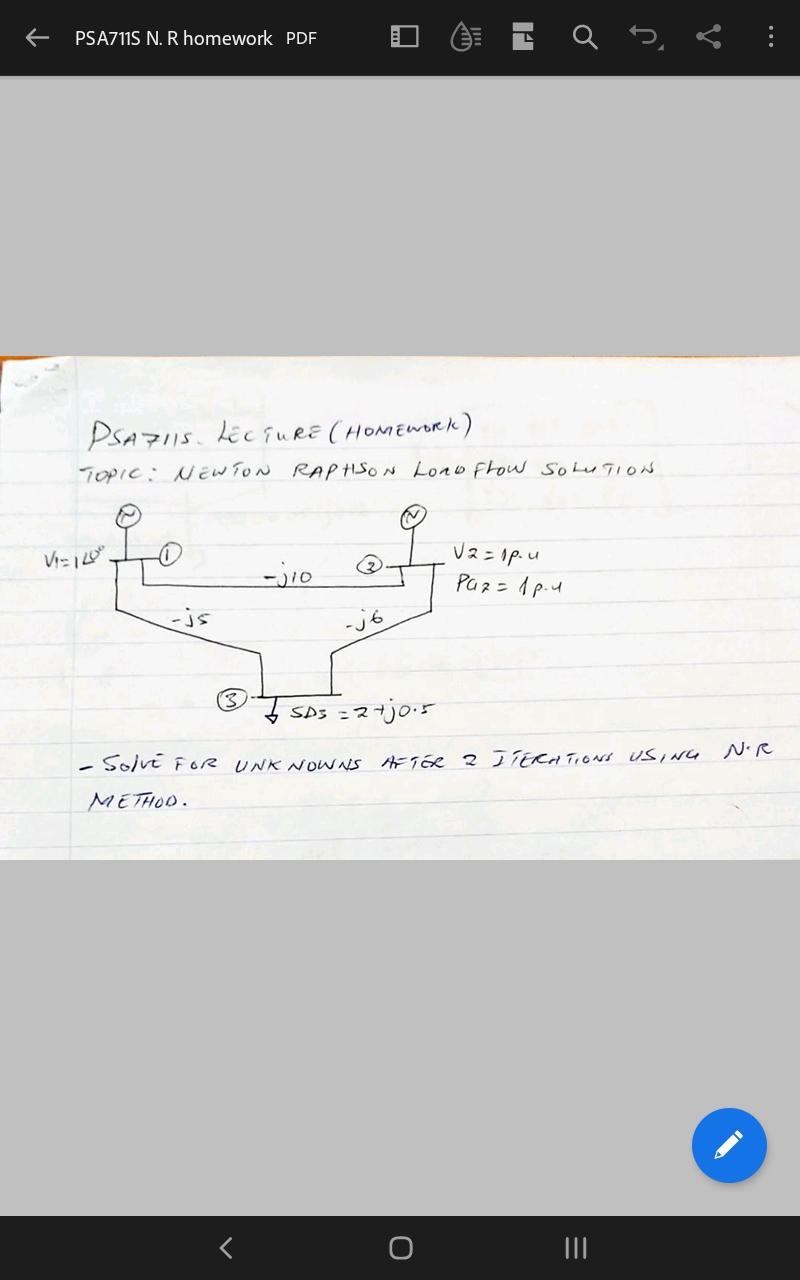 PSA711S N. R homework PDF
PSA711S. LECTURE (HOMEWORK)
TOPIC: NEWTON RAPHSON LOAD FLOW SOLUTION
N N
V1=1∠0° 1 2 V2 = 1p.u
-j10 PG2 = 1p.u
-j5 -j6
3 SD3 = 2+j0.5
- SOLVE FOR UNKNOWNS AFTER 2 ITERATIONS USING N.R
METHOD.